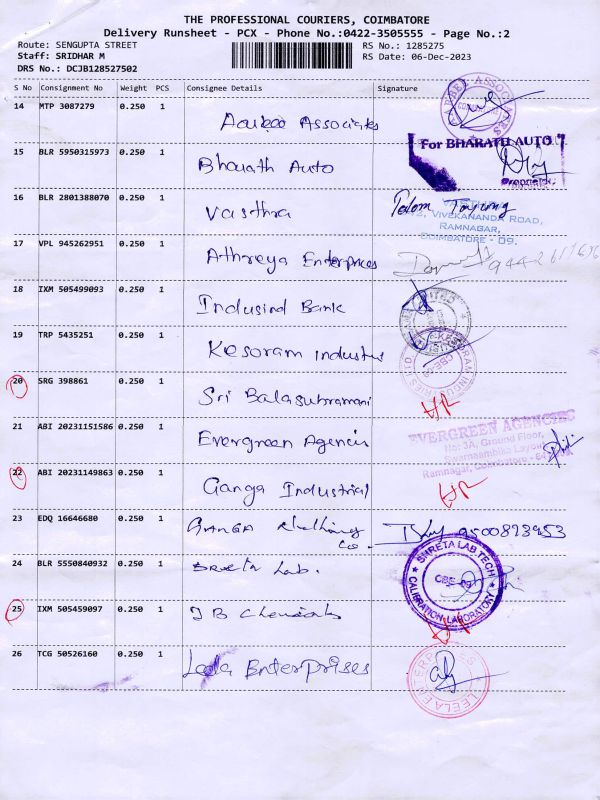 THE PROFESSIONAL COURIERS, COIMBATORE
Delivery Runsheet - PCX - Phone No.:0422-3505555 - Page No.:2
Route: SENGUPTA STREET RS No.: 1285275
Staff: SRIDHAR M RS Date: 06-Dec-2023
DRS No.: DCJB128527502
S No Consignment No Weight PCS Consignee Details Signature
14 MTP 3087279 0.250 1
Associates
15 BLR 5950315973 0.250 1
Bharath Auto
For BHARATH AUTO
Proprietor
16 BLR 2801388070 0.250 1
Vasthra
VIVEKANANDA ROAD,
RAMNAGAR,
COIMBATORE - 09.
17 VPL 945262951 0.250 1
Athreya Enterprices
18 IXM 505499093 0.250 1
Indusind Bank
19 TRP 5435251 0.250 1
Kesoram Industries
20 SRG 398861 0.250 1
Sri Balasubramani
21 ABI 20231151586 0.250 1
Evergreen Agencies
EVERGREEN AGENCIES
No: 3A, Ground Floor,
Swarnambika Layout,
Ramnagar, Coimbatore - 64
22 ABI 20231149863 0.250 1
Ganga Industrial
23 EDQ 16646680 0.250 1
GANGA Clothing
Co.
9500893953
24 BLR 5550840932 0.250 1
Shreta Lab.
SHRETA LAB TECH
CBE-09
CALIBRATION LABORATORY
25 IXM 505459097 0.250 1
J B Chemicals
26 TCG 50526160 0.250 1
Leela Enterprises
LEELA ENTERPRISES